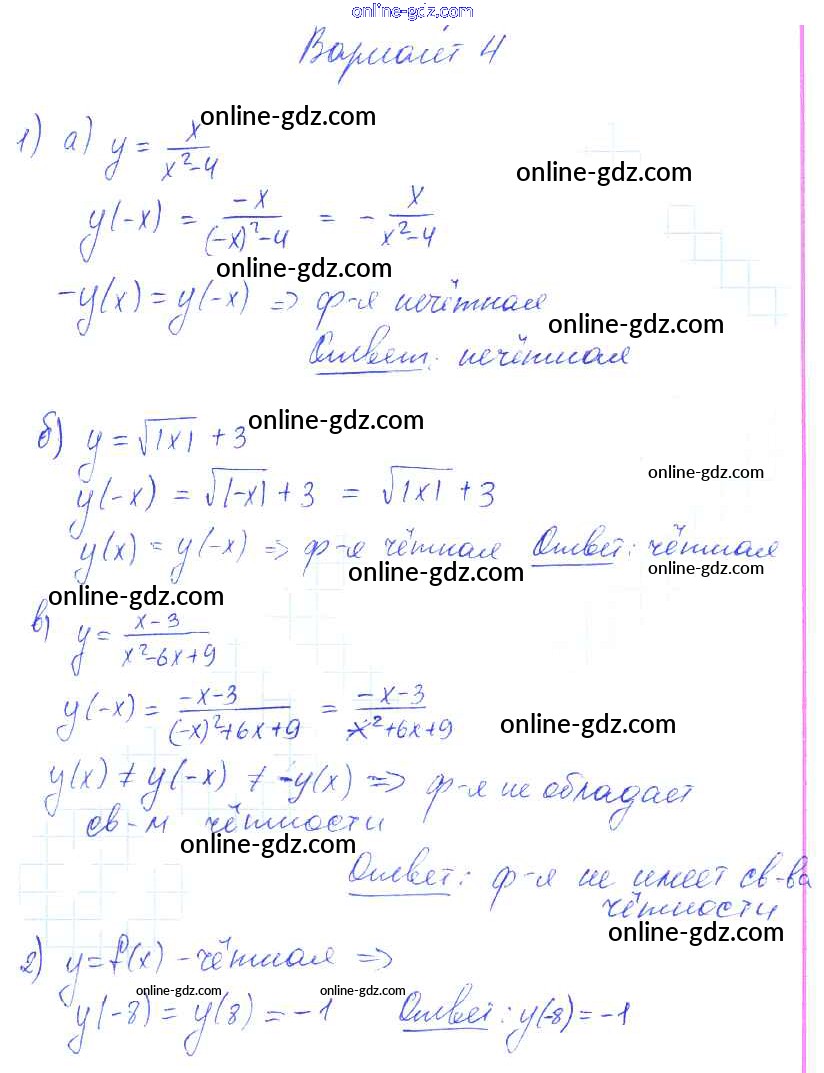 online-gdz.com
Вариант 4
online-gdz.com
1) а) y = x/(x²-4)
online-gdz.com
y(-x) = -x/((-x)²-4) = - x/(x²-4)
online-gdz.com
-y(x) = y(-x) => ф-я нечётная
online-gdz.com
Ответ: нечётная
online-gdz.com
б) y = √|x| + 3
online-gdz.com
y(-x) = √|-x| + 3 = √|x| + 3
y(x) = y(-x) => ф-я чётная Ответ: чётная
online-gdz.com online-gdz.com
online-gdz.com
в) y = (x-3)/(x²-6x+9)
y(-x) = (-x-3)/((-x)²+6x+9) = (-x-3)/(x²+6x+9)
online-gdz.com
y(x) ≠ y(-x) ≠ -y(x) => ф-я не обладает
св-м чётности
online-gdz.com
Ответ: ф-я не имеет св-ва
чётности
online-gdz.com
2) y=f(x) - чётная =>
online-gdz.com online-gdz.com
y(-8) = y(8) = -1 Ответ: y(-8) = -1